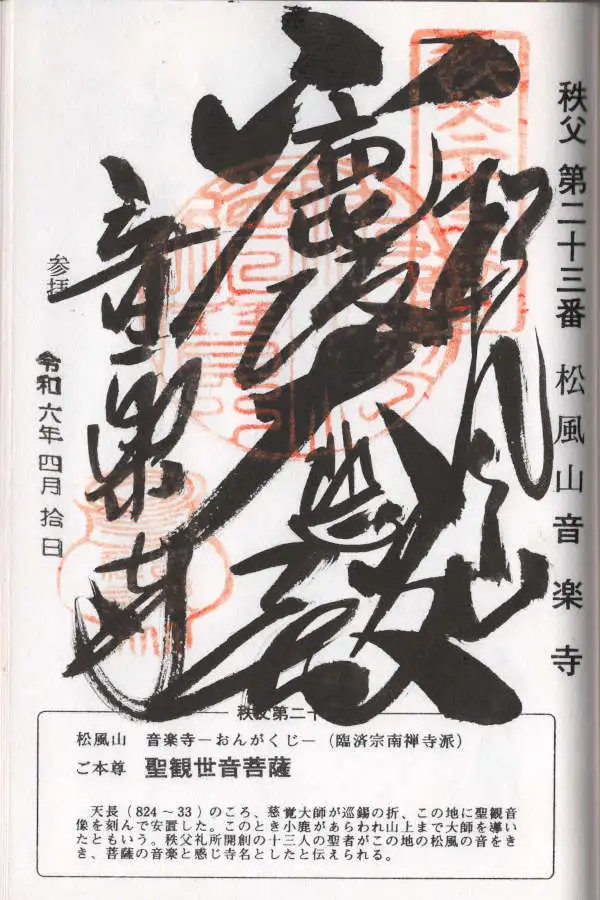 秩父 第二十三番 松風山音楽寺
松風山
音楽寺
参拝
令和六年四月拾日
秩父第二十
松風山 音楽寺―おんがくじ―（臨済宗南禅寺派）
ご本尊 聖観世音菩薩
天長（824～33）のころ、慈覚大師が巡錫の折、この地に聖観音
像を刻んで安置した。このとき小鹿があらわれ山上まで大師を導い
たともいう。秩父礼所開創の十三人の聖者がこの地の松風の音をき
き、菩薩の音楽と感じ寺名としたと伝えられる。